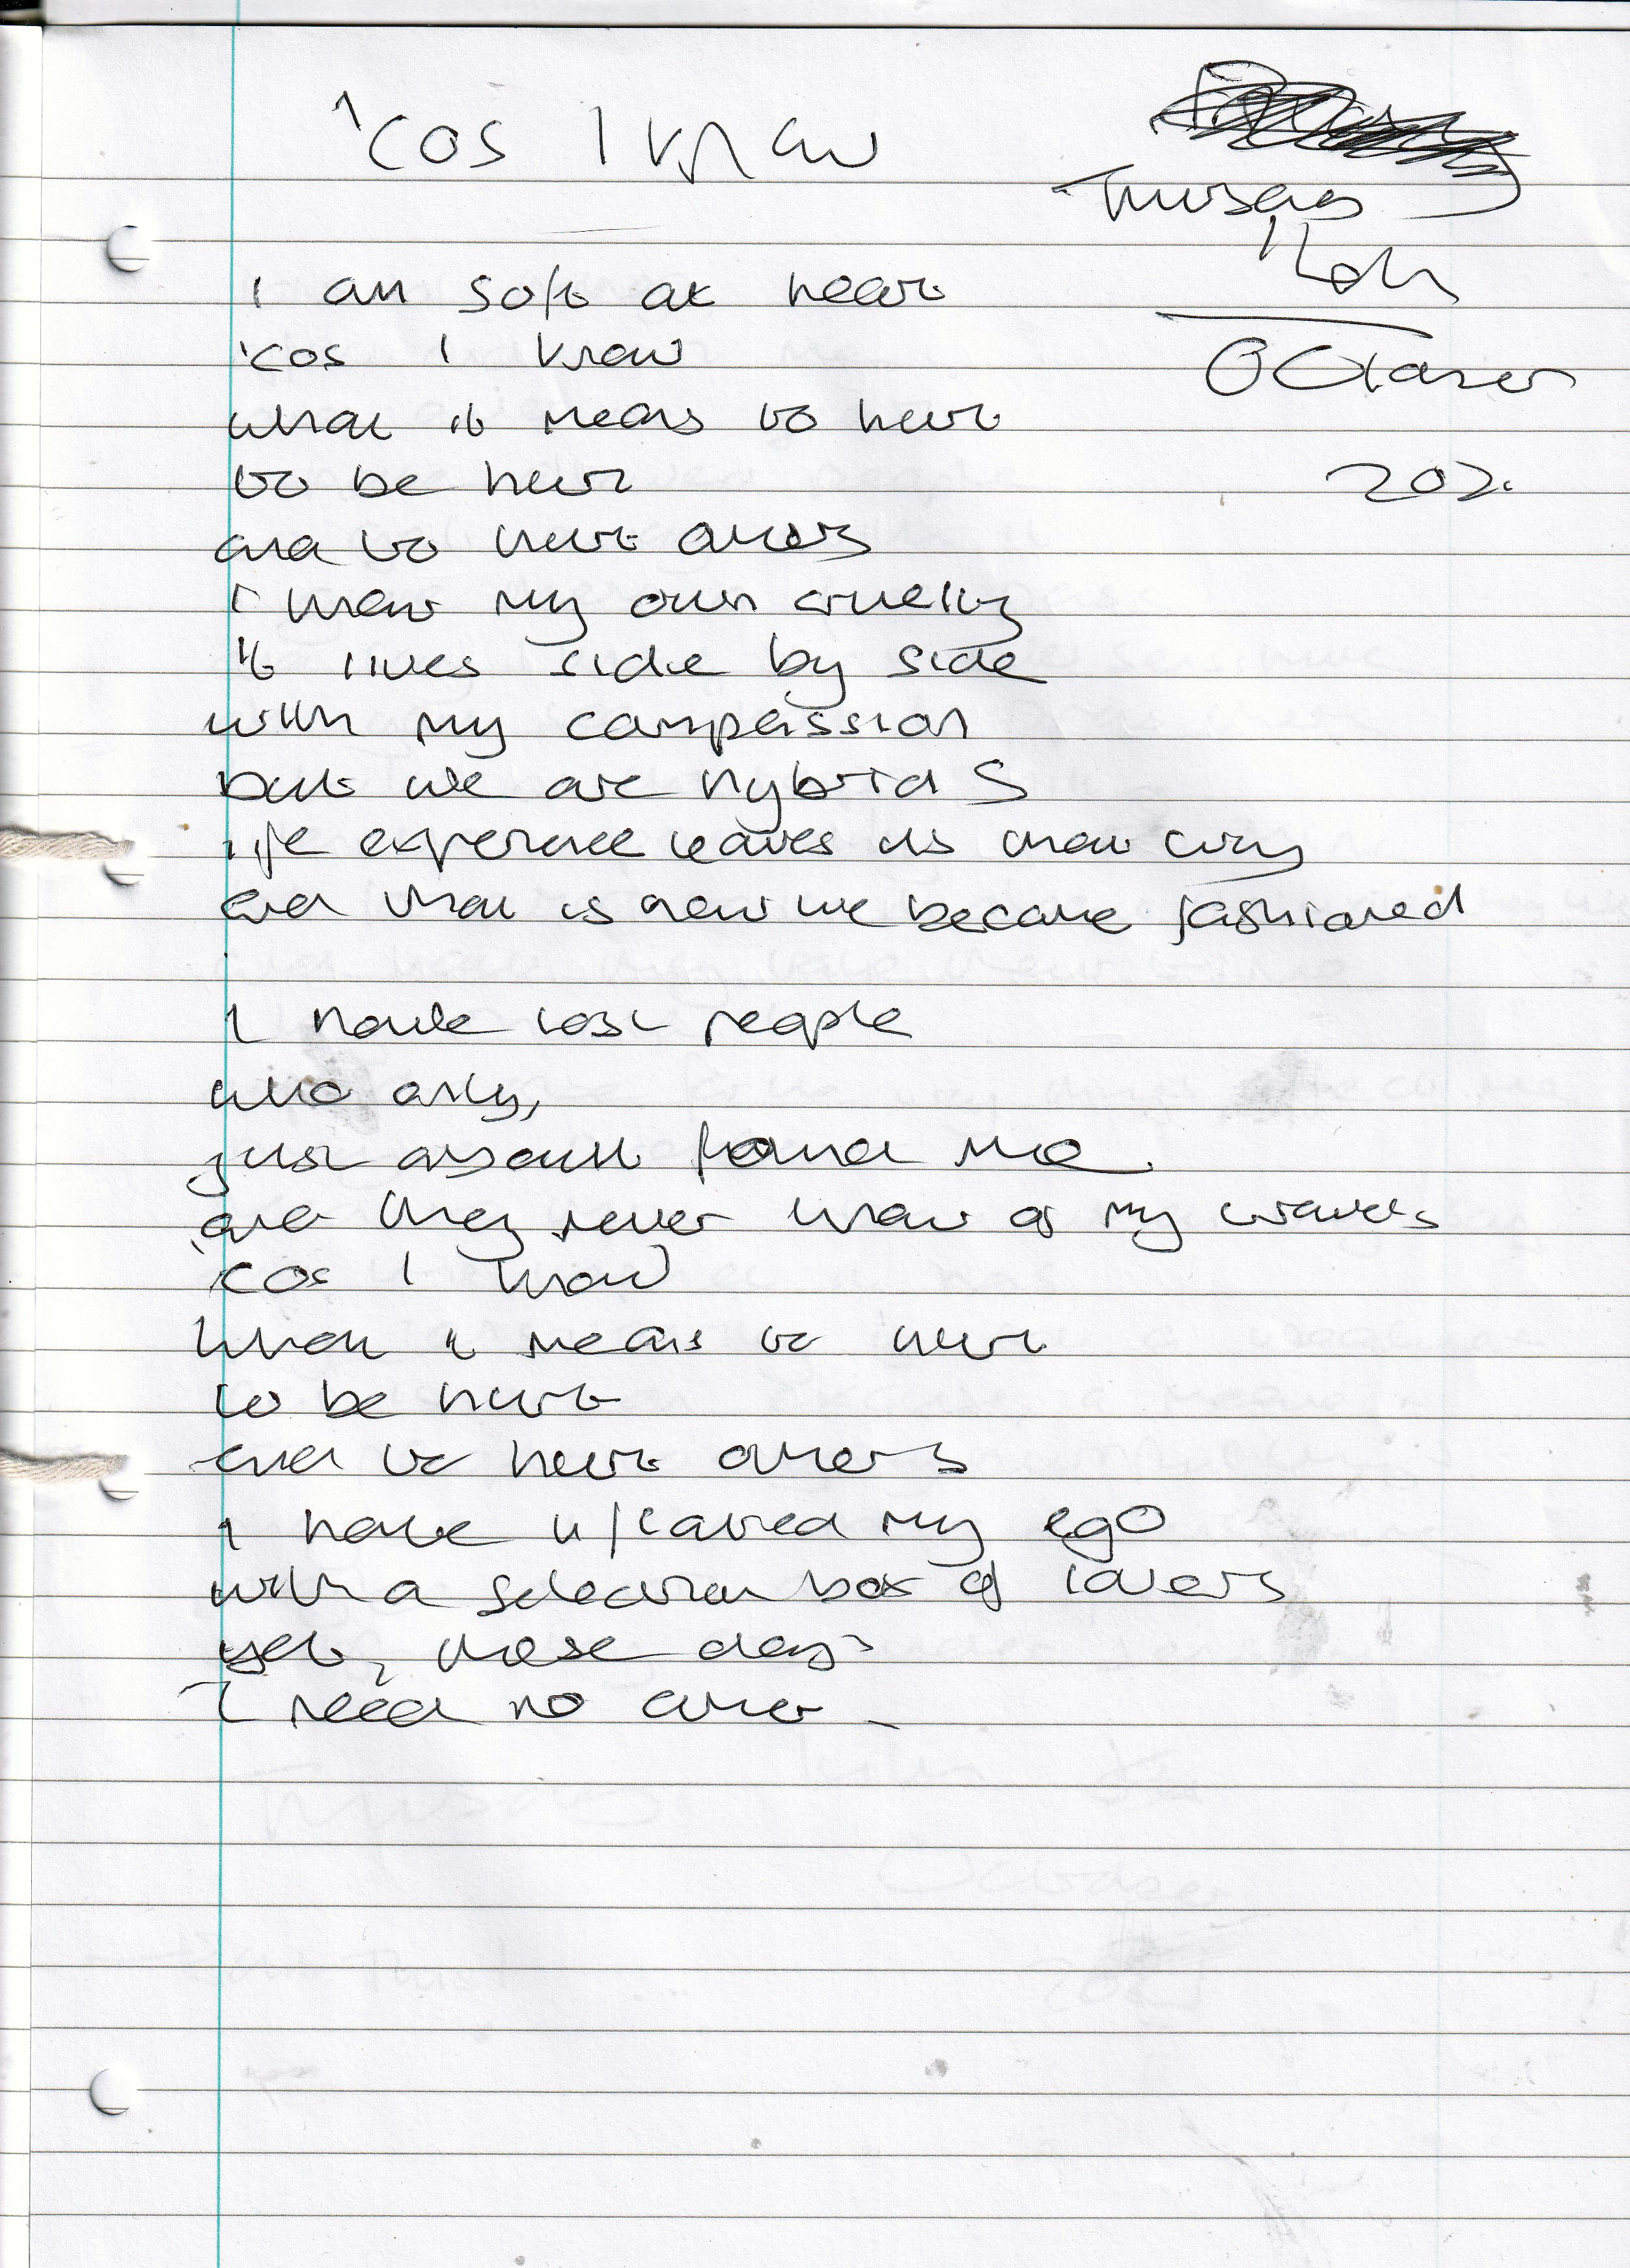 'cos I know
Thursday
October
202.
I am soft at heart
'cos I know
what it means to hurt
to be hurt
and to hurt others
I know my own cruelty
It lives side by side
with my compassion
but we are hybrids
life experience leaves us that way
and that is how we become fashioned
I have lost people
who only,
just about found me
and they never knew of my
'cos I know
what it means to hurt
to be hurt
and to hurt others
I have my ego
with a selection box of lovers
yet, these days
I need no other